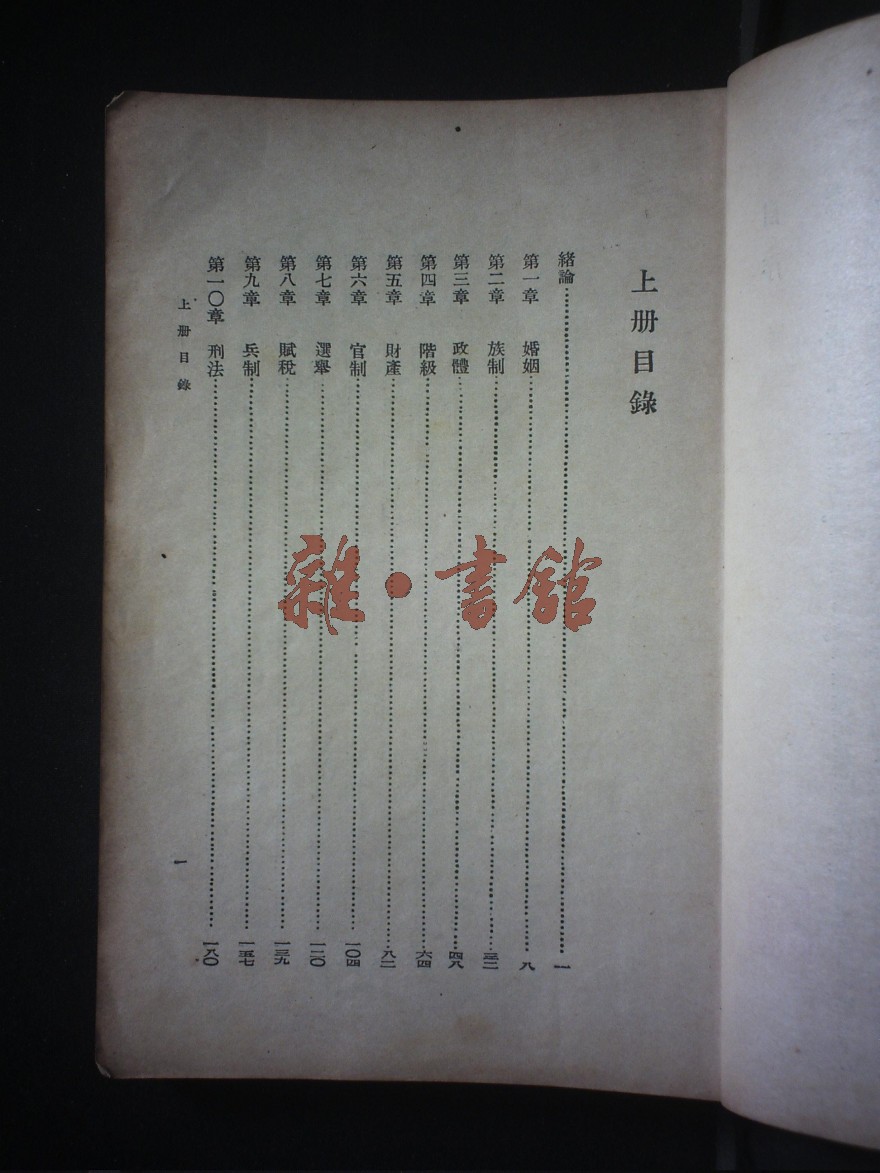 上册目錄
緒論……一
第一章 婚姻……八
第二章 族制……三二
第三章 政體……四八
第四章 階級……六四
第五章 財產……八二
第六章 官制……一〇四
第七章 選舉……一二〇
第八章 賦稅……一三九
第九章 兵制……一五七
第一〇章 刑法……一八〇
上册目錄
一
雜·書館